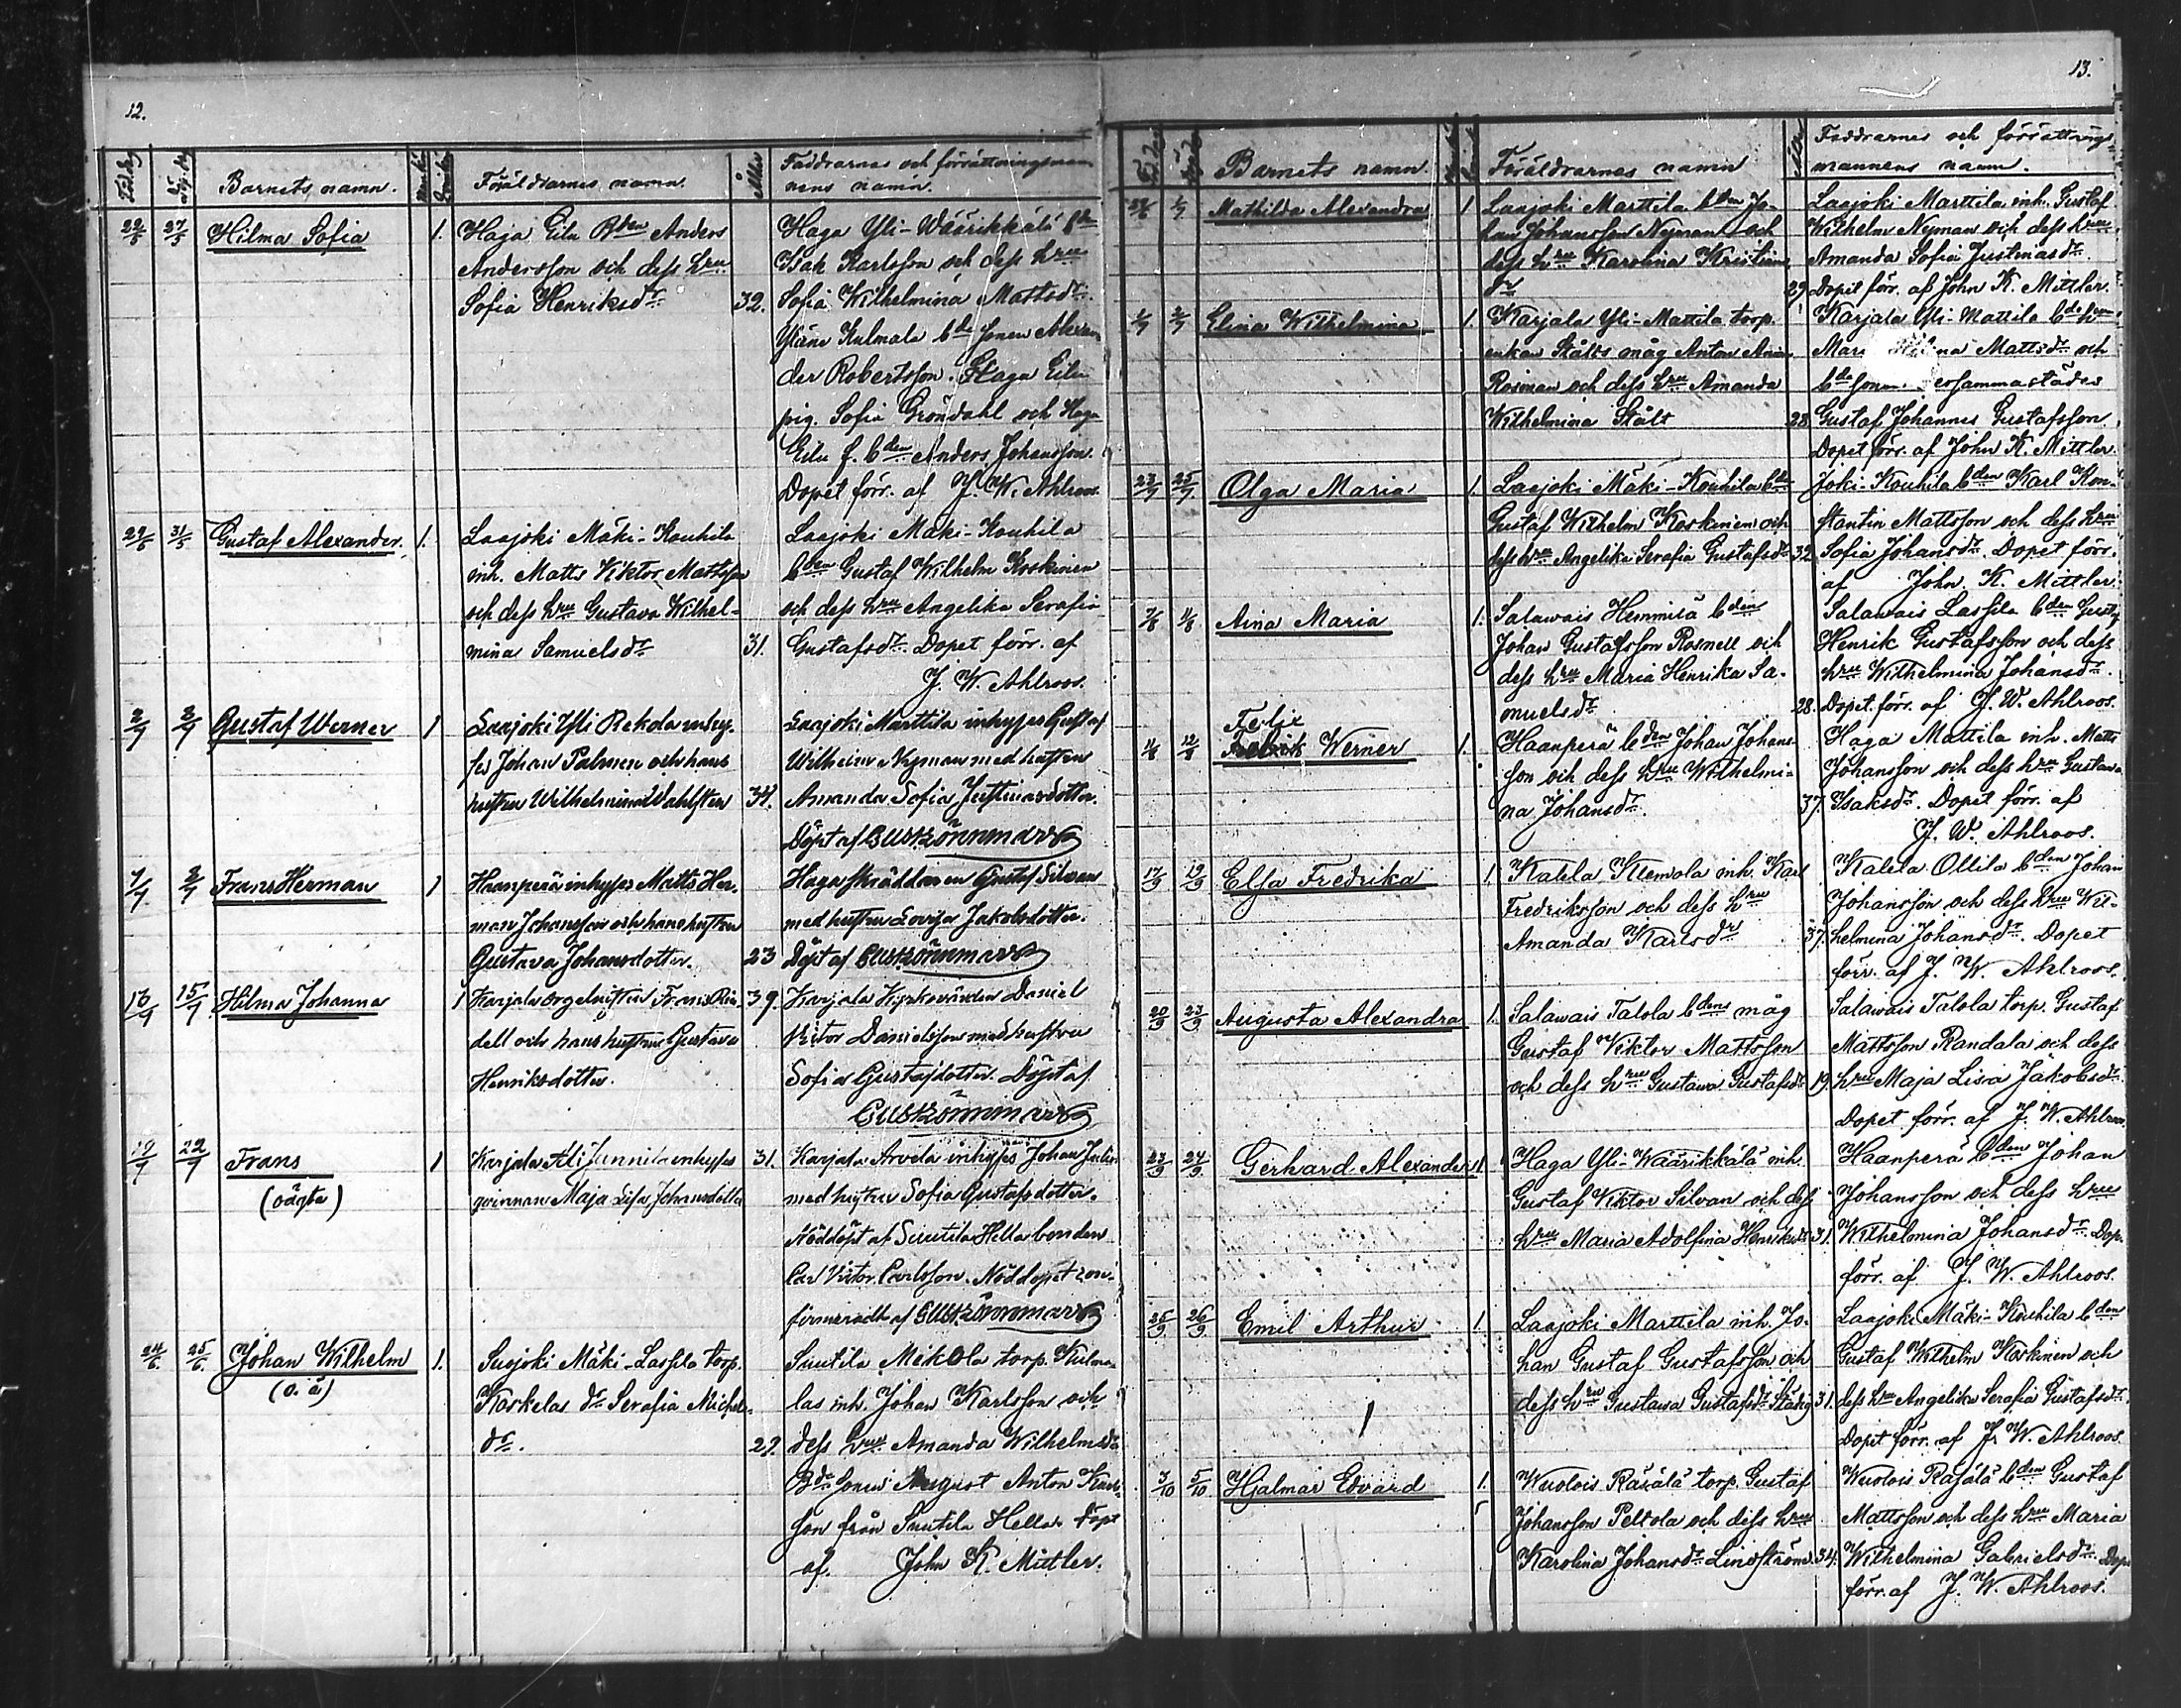 12.
Född.
Döpt.
Barnets namn.
Mankön
Qvinkön
Föräldrarnes namn.
Ålder
Faddrarnes och förrättningsman-
nens namn.
22/5 27/5 Hilma Sofia 1. Haga Eilu Bden Anders
Andersson och dess hru
Sofia Henriksdr 32.
Haga Yli-Wäärikkälä bde
Isak Karlsson och dess hru
Sofia Wilhelmina Mattsdr.
Yläne Kulmala bde sonen Alexan
der Robertsson. Haga Eilu
pig. Sofia Gröndahl och Haga
Eilu f. bden Anders Johansson.
Dopet förr. af J. W. Ahlroos.
29/5 31/5 Gustaf Alexander. 1. Laajoki Mäki-Kouhila
inh. Matts Viktor Mattsson
och dess hru Gustava Wilhel-
mina Samuelsdr 31.
Laajoki Mäki-Kouhila
bden Gustaf Wilhelm Koskinen
och dess hru Angelika Serafia
Gustafsdr. Dopet förr. af
J. W. Ahlroos.
2/7 3/7 Gustaf Werner 1 Laajoki Yli Rekola inhy-
ses Johan Palmen och hans
hustru Wilhelmina Dahlsten 34.
Laajoki Marttila inhyses Gustaf
Wilhelm Nyman med hustru
Amanda Sofia Justinasdotter.
Döpt af
7/7 8/7 Frans Herman 1 Haanperä inhyses Matts Her-
man Johansson och hans hustru
Gustava Johansdotter. 23
Haga skräddaren Gustaf Silvan
med hustru Lovisa Jakobsdotter.
Döpt af
13/7 15/7 Hilma Johanna 1 Karjala orgelnisten Frans Rin-
dell och hans hustru Gustava
Henriksdotter. 39.
Karjala Kyrkovärden Daniel
Victor Danielsson med hustru
Sofia Gustafsdotter. Döpt af
19/7 22/7 Frans 1
(oägta)
Karjala Ali Junnila inhyses
qvinnan Maja Lisa Johansdotter 31.
Karjala Arvela inhyses Johan Julin
med hustru Sofia Gustafsdotter.
Nöddöpt af Suutila Hella bonden
Carl Victor Carlsson. Nöddopet con-
firmeradt af
24/6 25/6 Johan Wilhelm 1.
(o. ä)
Suojoki Mäki-Lassila torp.
Koskelas dr Serafia Michels-
dr. 29.
Suutila Mikola torp. Kulma-
las inh. Johan Karlsson och
dess hru Amanda Wilhelmsdr
Bde sonen August Anton Karls-
son från Suutila Hella. Döpt
af. John K. Mittler.
13.
Barnets namn.
Föräldrarnes namn
Faddrarnes och förrättnings-
mannens namn.
1/7 Mathilda Alexandra 1 Laajoki Marttila bden Jo-
han Johansson Nyman och
dess hru Karolina Kristians
dr 29
Laajoki Marttila inh. Gustaf
Wilhelm Nyman och dess hru
Amanda Sofia Justinasdr.
Dopet förr. af John K. Mittler.
1/7 2/7 Elina Wilhelmina 1. Karjala Yli-Mattila torp.
enkan Ståhls måg Anton
Rosinan och dess hru Amanda
Wilhelmina Ståhl 28
Karjala Yli-Mattila bde
Mattsdr och
bde sonen
Gustaf Johannes Gustafsson.
Dopet förr. af John K. Mittler.
23/7 25/7 Olga Maria 1. Laajoki Mäki-Kouhila bde
Gustaf Wilhelm Koskinen och
dess hru Angelika Serafia Gustafsdr 32.
Joki-Kouhila bden Karl Kon-
stantin Mattsson och dess hru
Sofia Johansdr. Dopet förr.
af John K. Mittler.
7/8 11/8 Aina Maria 1. Salawais Hemmilä bden
Johan Gustafsson Rosnell och
dess hru Maria Henrika Sa-
muelsdr 28.
Salawais Lassila bden Gustaf
Henrik Gustafsson och dess
hru Wilhelmina Johansdr.
Dopet förr. af J. W. Ahlroos.
Felix
11/8 12/8 Fredrik Werner 1. Haanperä bden Johan Johans-
son och dess hru Wilhelmi-
na Johansdr. 37.
Haga Mattila inh. Matts
Johansson och dess hru Gustava
Isaksdr. Dopet förr. af
J. W. Ahlroos.
17/9 19/9 Elsa Fredrika 1. Kalela Klemola inh. Karl
Fredriksson och dess hru
Amanda Karlsdr 37.
Kalela Ollila bden Johan
Johansson och dess hru Wil-
helmina Johansdr. Dopet
förr. af J. W. Ahlroos.
20/9 23/9 Augusta Alexandra 1. Salawais Talola bdens måg
Gustaf Viktor Mattsson
och dess hru Gustawa Gustafsdr 19.
Salawais Talola torp. Gustaf
Mattsson Randala och dess
hru Maja Lisa Jakobsdr.
Dopet förr. af J. W. Ahlroos
23/9 24/9 Gerhard Alexander 1. Haga Yli-Wäärikkälä inh.
Gustaf Viktor Silvan och dess
hru Maria Adolfina Henriksdr 31.
Haanperä bden Johan
Johansson och dess hru
Wilhelmina Johansdr. Dop.
förr. af J. W. Ahlroos.
25/9 26/9 Emil Arthur 1. Laajoki Marttila inh. Jo-
han Gustaf Gustafsson och
dess hru Gustawa Gustafsdr Ståhlg 31.
Laajoki Mäki-Kouhila bden
Gustaf Wilhelm Koskinen och
dess hru Angelika Serafia Gustafsdr.
Dopet förr. af J. W. Ahlroos.
3/10 5/10 Hjalmar Edvard 1. Wuolois Räsälä torp. Gustaf
Johansson Peltola och dess hru
Karolina Johansdr Lindström 34.
Wuolois Räsälä bden Gustaf
Mattsson och dess hru Maria
Wilhelmina Gabrielsdr. Dope
förr. af J. W. Ahlroos.